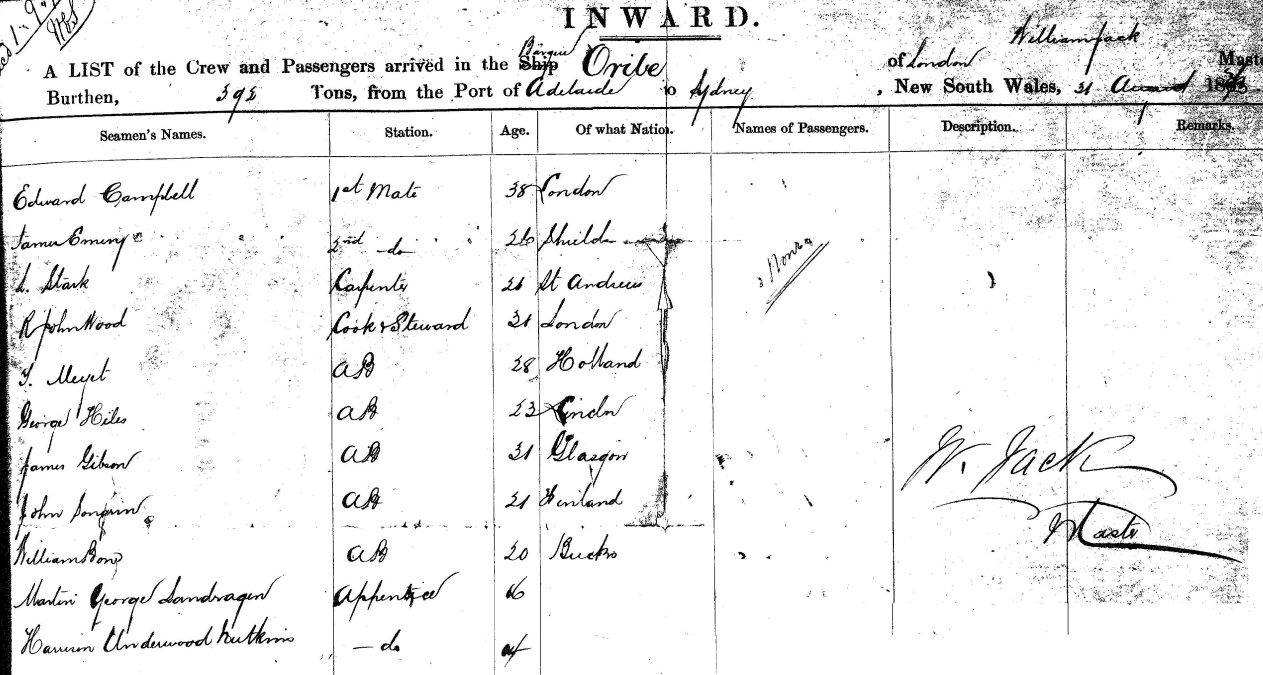 INWARD.
Barque William Jack
A LIST of the Crew and Passengers arrived in the Ship Oribe of London Maste
Burthen, 392 Tons, from the Port of Adelaide to Sydney, New South Wales, 31
Seamen's Names. Station. Age. Of what Nation. Names of Passengers. Description. Remarks.
Edward Campbell 1st Mate 38 London
James Emery 2nd do 26 Shields
L. Stark Carpenter 21 St Andrews
R John Wood Cook & Steward 31 London
AB 28 Holland
George Hiles AB 23 London
James Gibson AB 31 Glasgow
John AB 21 Finland
William Bone AB 20 Bucks
Martin George Landragen Apprentice 16
Harrison Underwood do
None
W. Jack
Master